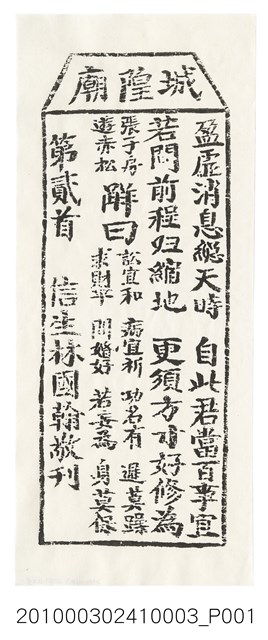 城隍廟
盈虛消息總天時 自此君當百事宜
若問前程归縮地 更須方寸好修為
張子房
遊赤松
解曰
訟宜和 病宜祈 功名有 遲莫躁
求財平 問婚好 若 為 身莫保
第貳首 信生林國翰敬刊
201000302410003_P001